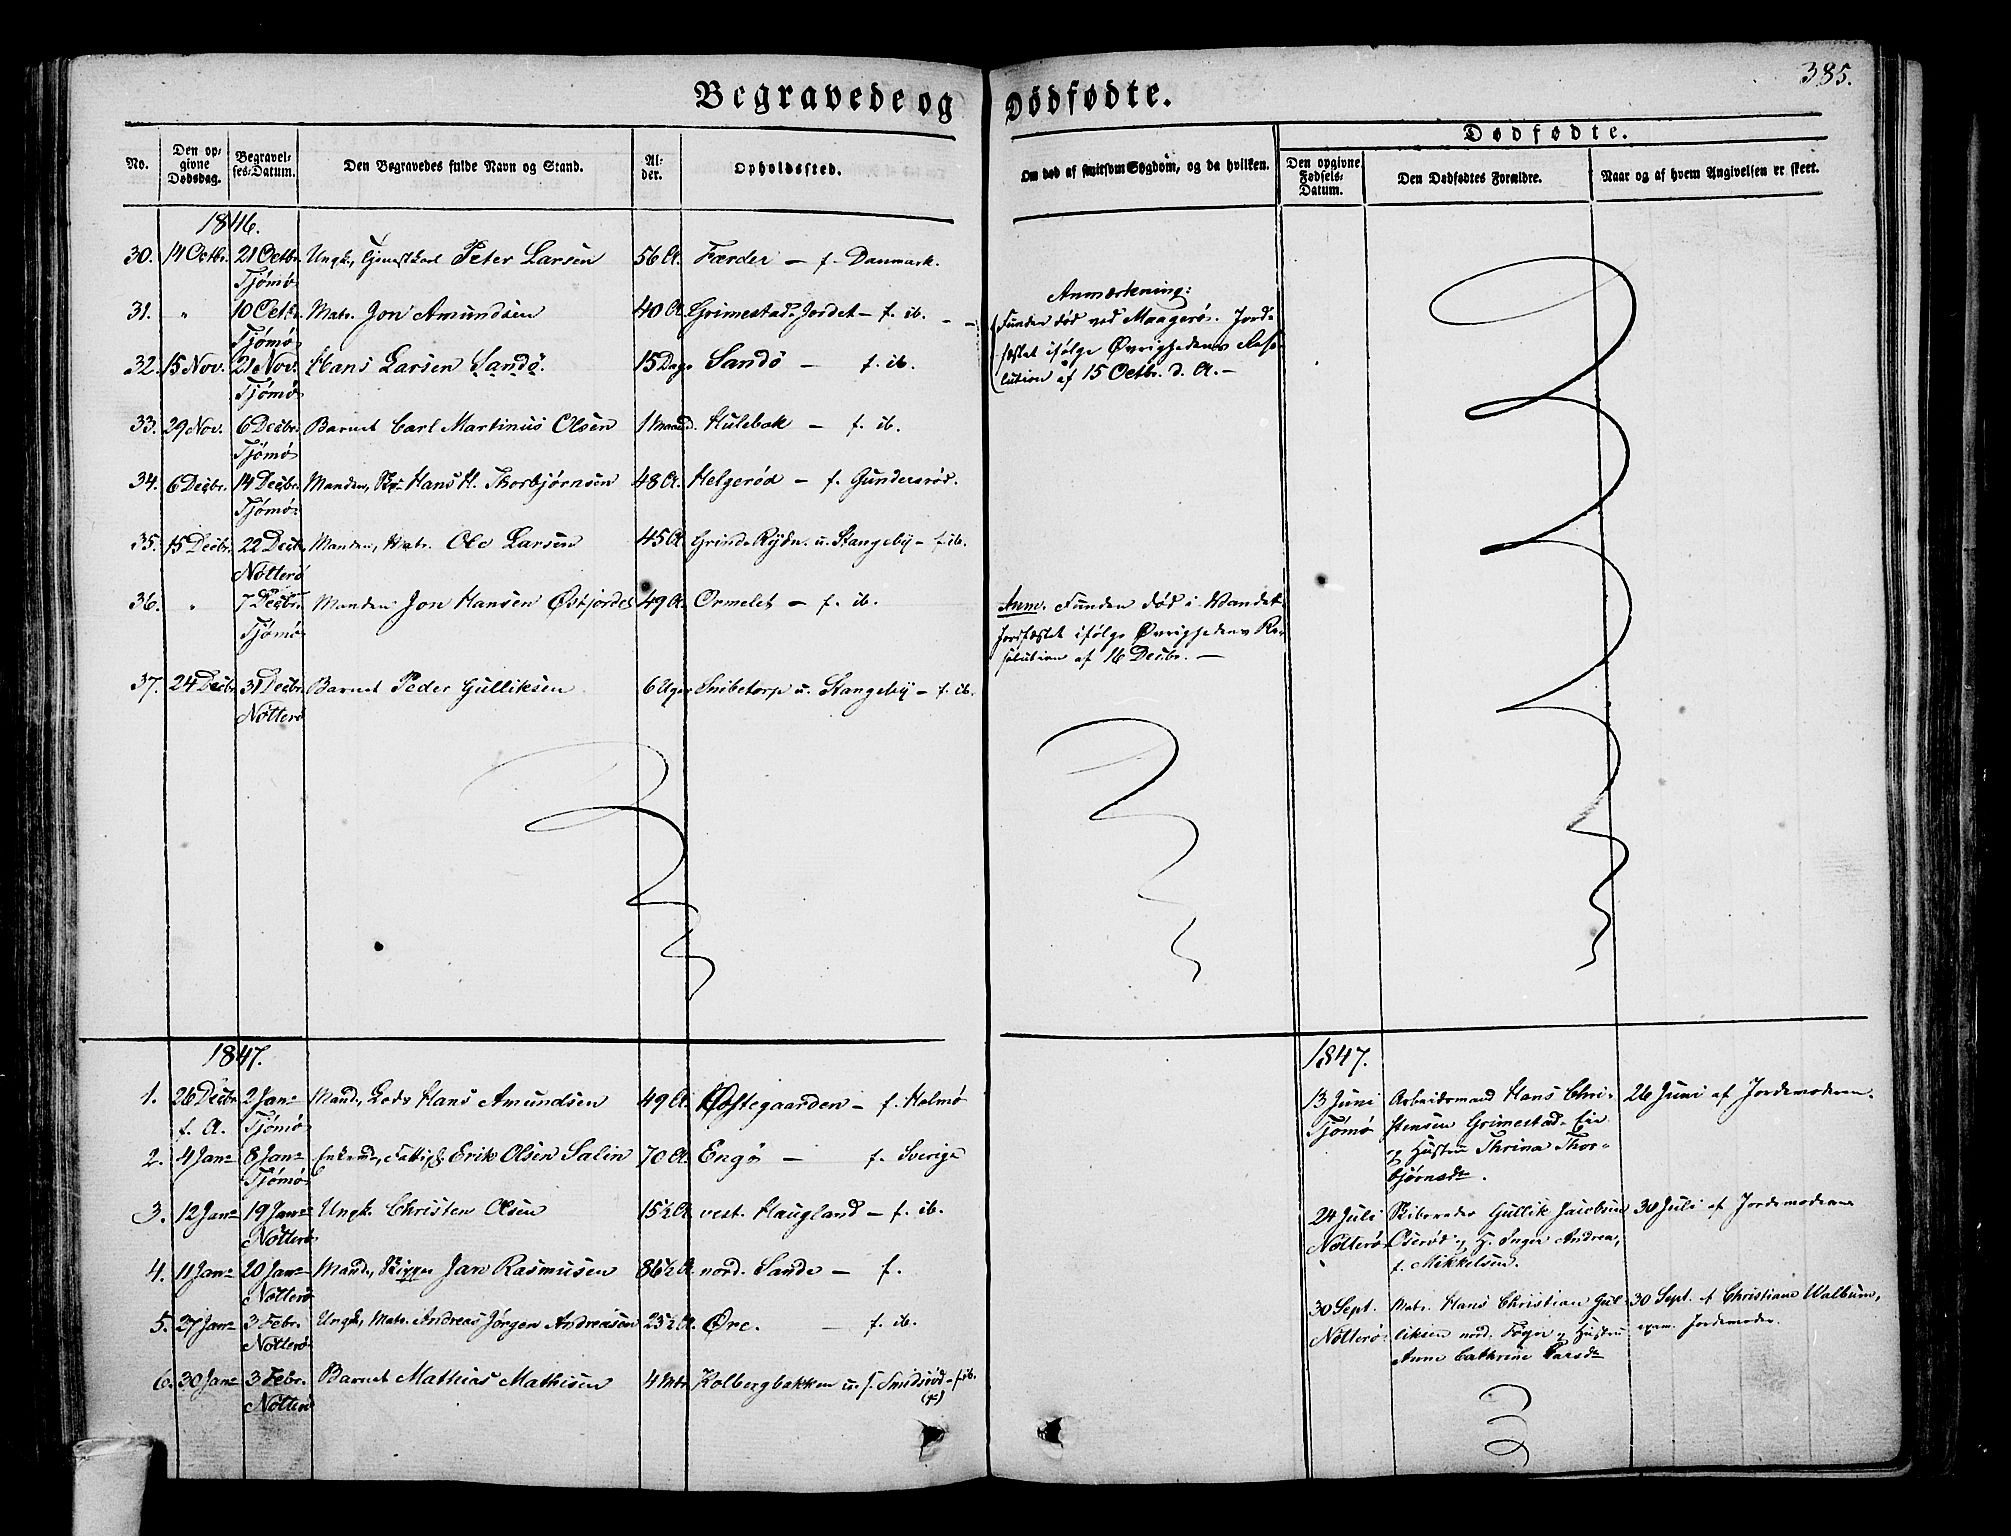 385.
Begravede og Dødfødte.
No. Den opgivne Dødsdag. Begravelses-Datum. Den Begravedes fulde Navn og Stand. Alder. Opholdssted. Om død af smitsom Sygdom, og da hvilken.
Dødfødte.
Den opgivne Fødsels-Datum. Den Dødfødtes Forældre. Naar og af hvem Angivelsen er skeet.
1846.
30. 14 Octbr. 21 Octbr. Ungk., Tjenestkarl Peter Larsen 56 A. Færder — f. Danmark.
Tjømø
31. " 10 Octbr. Matr. Jon Amundsen 40 A. Grimestad-Jordet — f. ib. - -
Tjømø
Anmærkning:
Funden død ved Maagerø. Jord-
fæstet ifølge Øvrighedens Reso-
lution af 15 Octbr. d. A. —
32. 15 Nov. 21 Nov. Hans Larsen Sandø. 15 Dage Sandø — f. ib.
Tjømø
33. 29 Nov. 6 Decbr. Barnet Carl Martinus Olsen 1 Maaned. Hulebak — f. ib.
Tjømø
34. 6 Decbr. 14 Decbr. Manden, Hans H. Thorbjørnsen 48 A. Helgerød — f. Gundersrød.
Tjømø
35. 15 Decbr. 22 Decbr. Manden, Matr. Ole Larsen 45 A. Grinde-Rydn. u. Stangeby — f. ib.
Nøtterø
36. " 7 Decbr. Manden Jon Hansen Østjordet 49 A. Ormelet — f. ib.
Tjømø
Anm. Funden død i Vandet.
Jordfæstet ifølge Øvrighedens Re-
solution af 16 Decbr. —
37. 24 Decbr. 31 Decbr. Barnet Peder Gulliksen 6 Uger Snibetorp u. Stangeby — f. ib.
Nøtterø
1847.
1. 26 Decbr. 2 Jan. Mand, Lods Hans Amundsen 49 A. Østegaarden — f. Holmø
f. A. Tjømø
2. 4 Jan. 8 Jan. Enkemd., Fattigl. Erik Olsen Salin 70 A. Engø — f. Sverige
Tjømø
3. 12 Jan. 19 Jan. Ungk. Christen Olsen 15½ A. vest. Haugland — f. ib.
Nøtterø
4. 11 Jan. 20 Jan. Mand, Skipper Jan Rasmusen 86½ A. nord. Sande — f.
Nøtterø
5. 27 Jan. 3 Febr. Ungk., Matr. Andreas Jørgen Andreasen 23½ A. Øre. — f. ib.
Nøtterø
6. 30 Jan. 3 Febr. Barnet Mathias Mathisen 4 Mdr. Kolbergbakken u. s. Smidsrød — f. ib.
Nøtterø
1847.
13 Juni Arbeidsmand Hans Chri- 26 Juni af Jordemoderen.
Tjømø stensen Grimestad-Eie
og Hustru Thrina Thor-
bjørnsdtr.
24 Juli Gullik Jacobsen 30 Juli af Jordemoderen
Nøtterø Oserød og H. Inger Andrea,
f. Mikkelsen.
30 Sept. Matr. Hans Christian Gul- 30 Sept. af Christiane Walbum,
Nøtterø liksen nord. Føyen og Hustru exam. Jordemoder.
Anne Cathrine Larsdtr